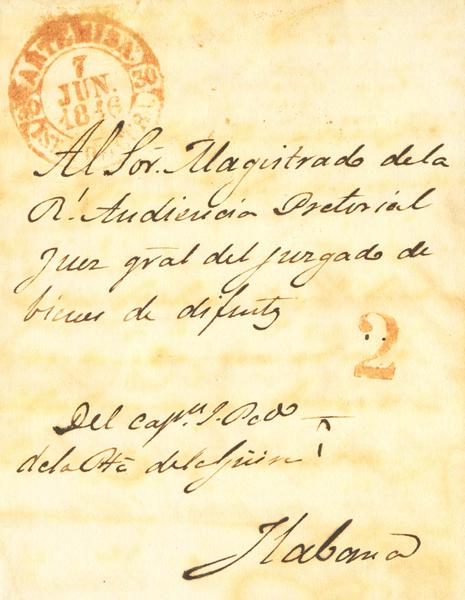 ARTEMISA
7
JUN.
1846
Al Sor. Magistrado de la
Rl. Audiencia Pretorial
Juez gral del juzgado de
bienes de difuntos
2
Del capn. J. Pedo
de la Pta de la Güira
Habana